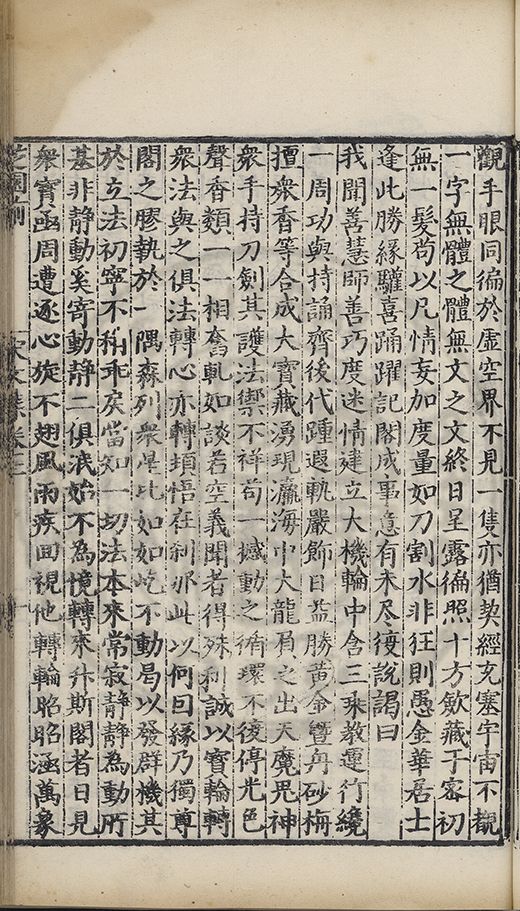 觀手眼同徧於虛空界不見一隻亦猶契經充塞宇宙不覩
一字無體之體無文之文終日呈露徧照十方歛藏于密初
無一髮苟以凡情妄加度量如刀割水非狂則愚金華居士
逢此勝緣驩喜踊躍記閣成事意有未尽復說謁曰
我聞善慧師善巧度迷情建立大機輪中含三乘教運行纔
一周功與持誦齊後代踵遐軌嚴飾日益勝黄金暨丹砂梅
擅衆香等合成大寶藏湧現瀛海中大龍肩之出天魔畏神
衆手持刀劍其護法禦不祥苟一撼動之循環不復停光色
聲香類一一相奮軋如談若空義聞者得殊利誠以寶輪轉
衆法與之俱法轉心亦轉頓悟在刹那此以何因緣乃獨尊
閣之膠執於一隅森列衆星比如如屹不動曷以發群機其
於立法初寧不稍乖戾當知一切法本來常寂靜靜為動所
基非静動奚寄動静二俱泯始不為境轉來升斯閣者日見
衆寶函周遭逐心旋不翅風雨疾回視他轉輪昭昭涵萬象
芝園前